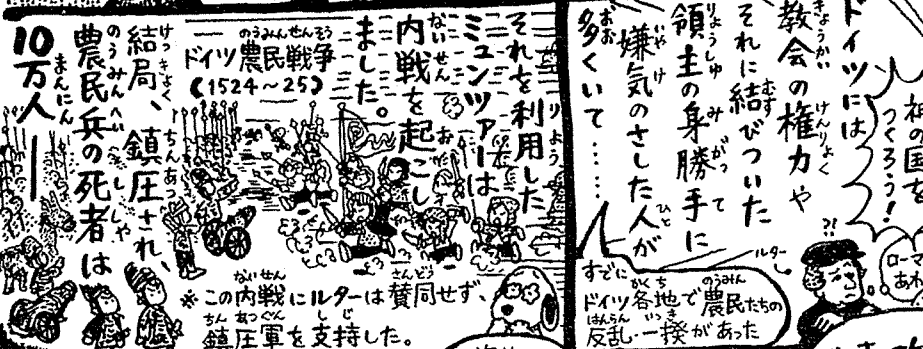 ドイツには
教会の権力や
それに結びついた
領主の身勝手に
嫌気のさした人が
多くいて……
つくろう!
?!
ルター
ローマ
すでに
ドイツ各地で農民たちの
反乱・一揆があった
それを利用した
ミュンツァーは
内戦を起こし
ました。
ドイツ農民戦争
(1524〜25)
結局、鎮圧され、
農民兵の死者は
10万人――
※この内戦にルターは賛同せず、
鎮圧軍を支持した。